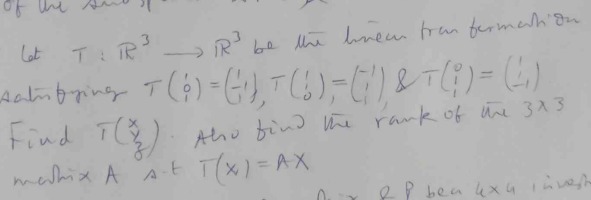 of the
Let T : ℝ³ → ℝ³ be the linear transformation
satisfying T(1 1 0) = (1 -1 1), T(1 1 0) = (-1 1 1) & T(0 1 1) = (1 1 -1)
Find T(x y z). Also find the rank of the 3x3
matrix A s.t T(x) = AX
& P be a 4x4